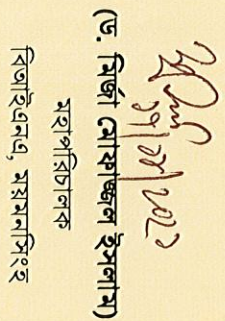 (ড. মির্জা মোফাজ্জল ইসলাম)
মহাপরিচালক
বিআইএনএ, ময়মনসিংহ